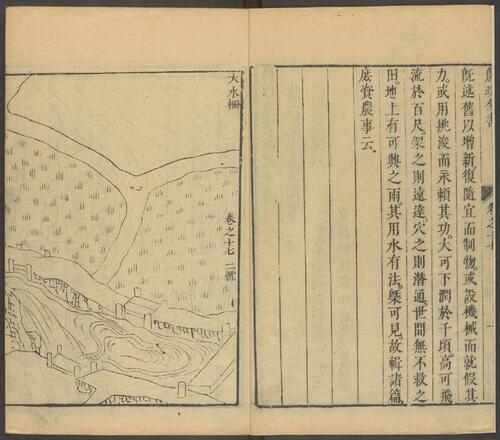 農政全書 卷之十七 一
既述舊以增新復隨宜而制物。或設機械而就假其
力。或用挑浚而永賴其功。大可下潤於千頃。高可飛
流於百尺。架之則遠達。穴之則潛通。世間無不救之
田。地上有可興之雨。其用水有法。槩可見。故輯諸篇
庶資農事云。
大水柵
卷之十七 二號